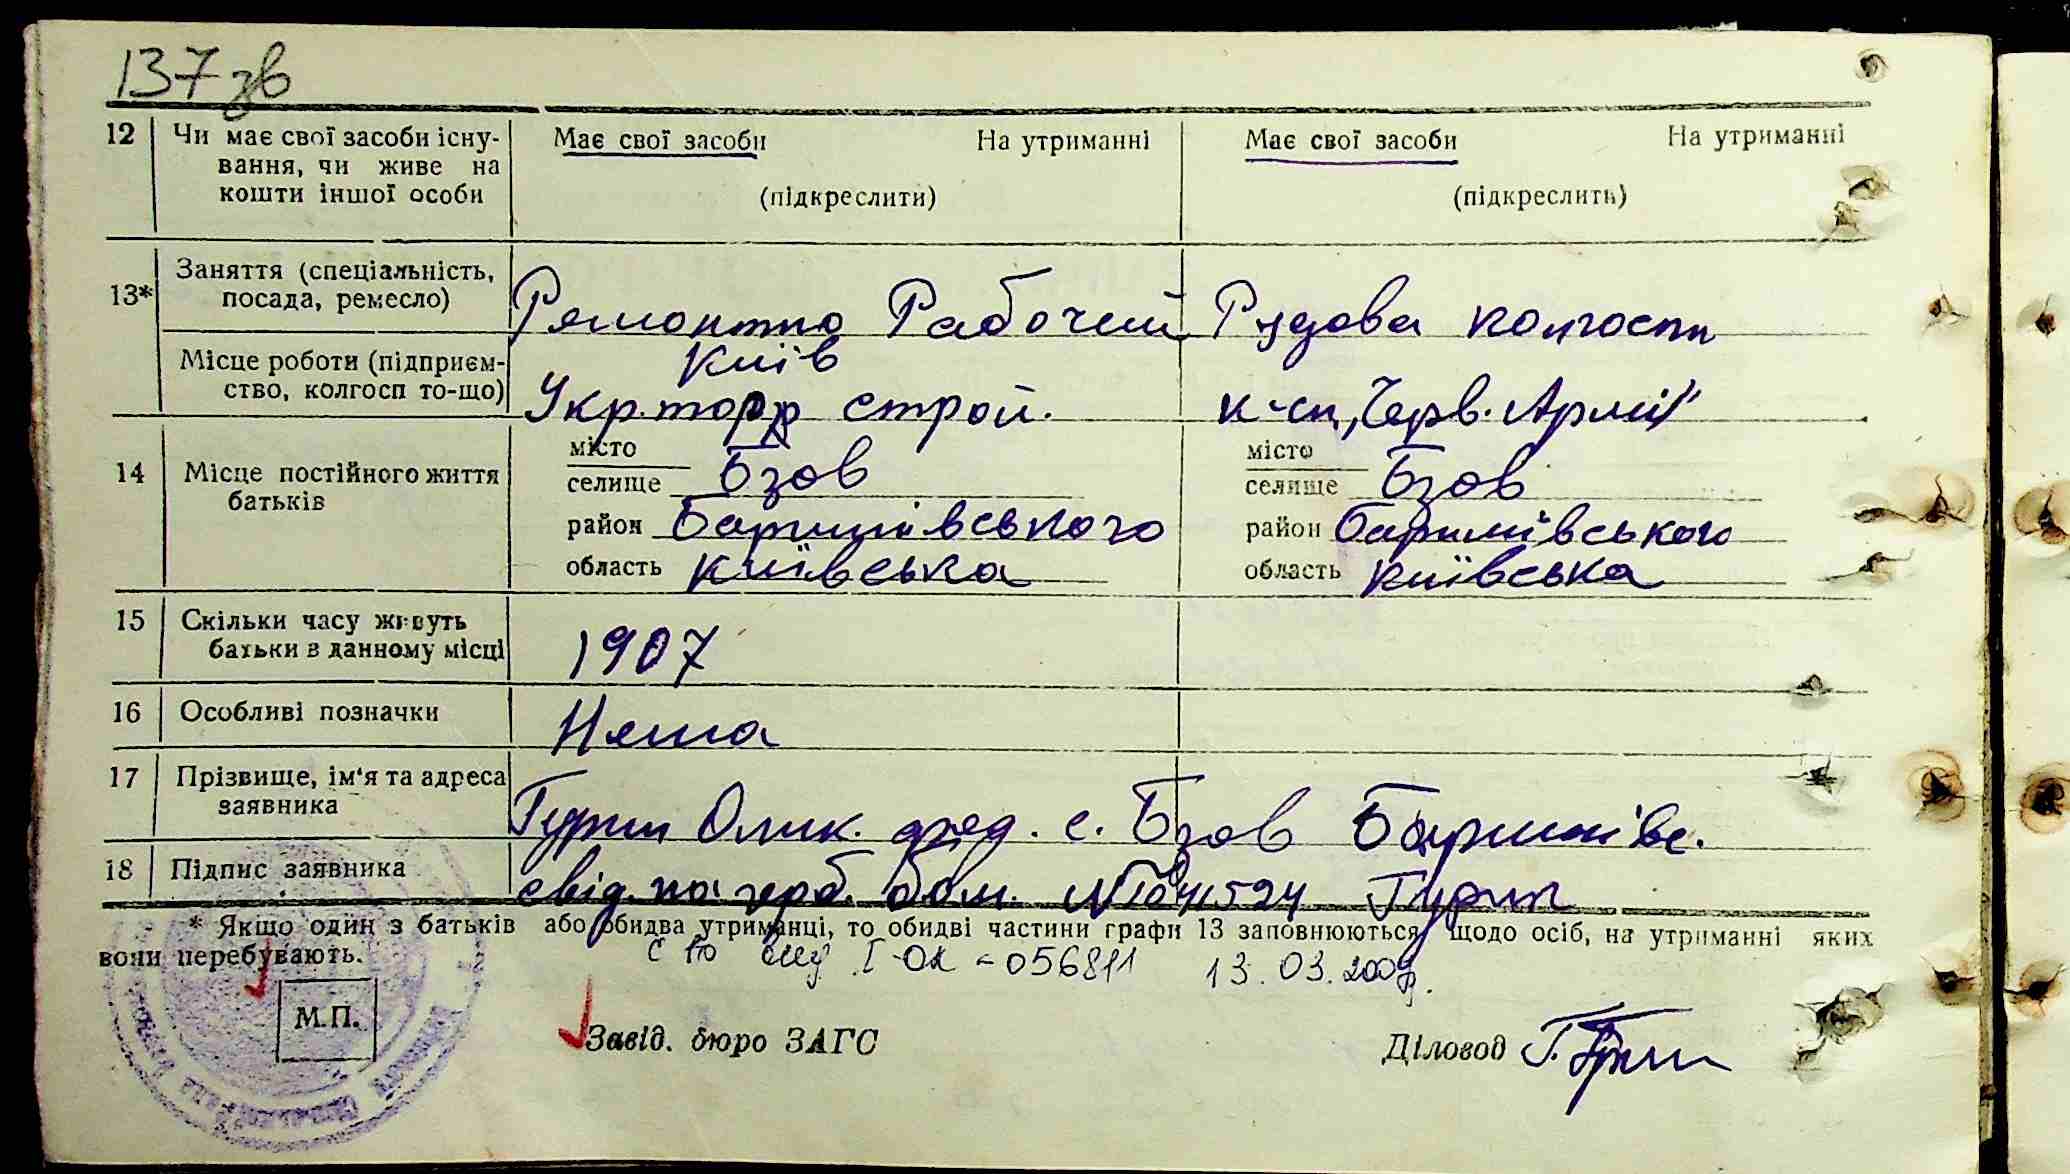 137 зв
12 Чи має свої засоби існу- Має свої засоби На утриманні Має свої засоби На утриманні
вання, чи живе на
кошти іншої особи (підкреслити) (підкреслить)
Заняття (спеціальність,
13* посада, ремесло) Ремонтно Рабочий Рядова колгосп
Місце роботи (підприєм- Київ
ство, колгосп то-що) Укр. торг строй. к-сп „Черв. Армії"
місто місто
14 Місце постійного життя селище Бзов селище Бзов
батьків район Баришівського район Баришівського
область Київська область Київська
15 Скільки часу живуть
батьки в данному місці 1907
16 Особливі позначки Нема
17 Прізвище, ім'я та адреса
заявника Гурин с. Бзов Баришівс.
18 Підпис заявника свід. Гурин
* Якщо один з батьків або обидва утриманці, то обидві частини графи 13 заповнюються щодо осіб, на утриманні яких
вони перебувають. I-ОК-056811 13.03.2009р.
М.П.
Завід. бюро ЗАГС Діловод